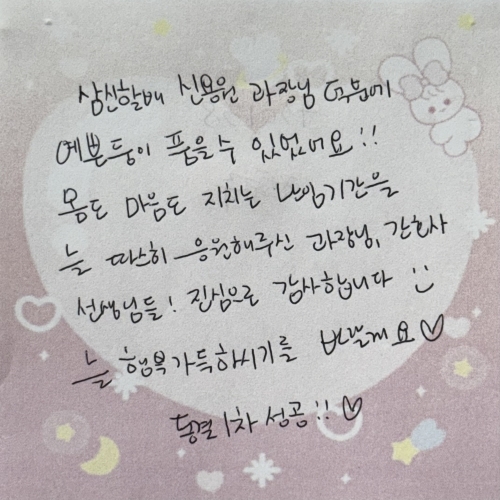 삼신할배 신용원 과장님 덕분에
예쁜둥이 품을수 있었어요!!
몸도 마음도 지치는 난임기간을
늘 따스히 응원해주신 과장님, 간호사
선생님들! 진심으로 감사합니다 :)
늘 행복가득하시기를 바랄게요♡
동결 1차 성공!! ♡